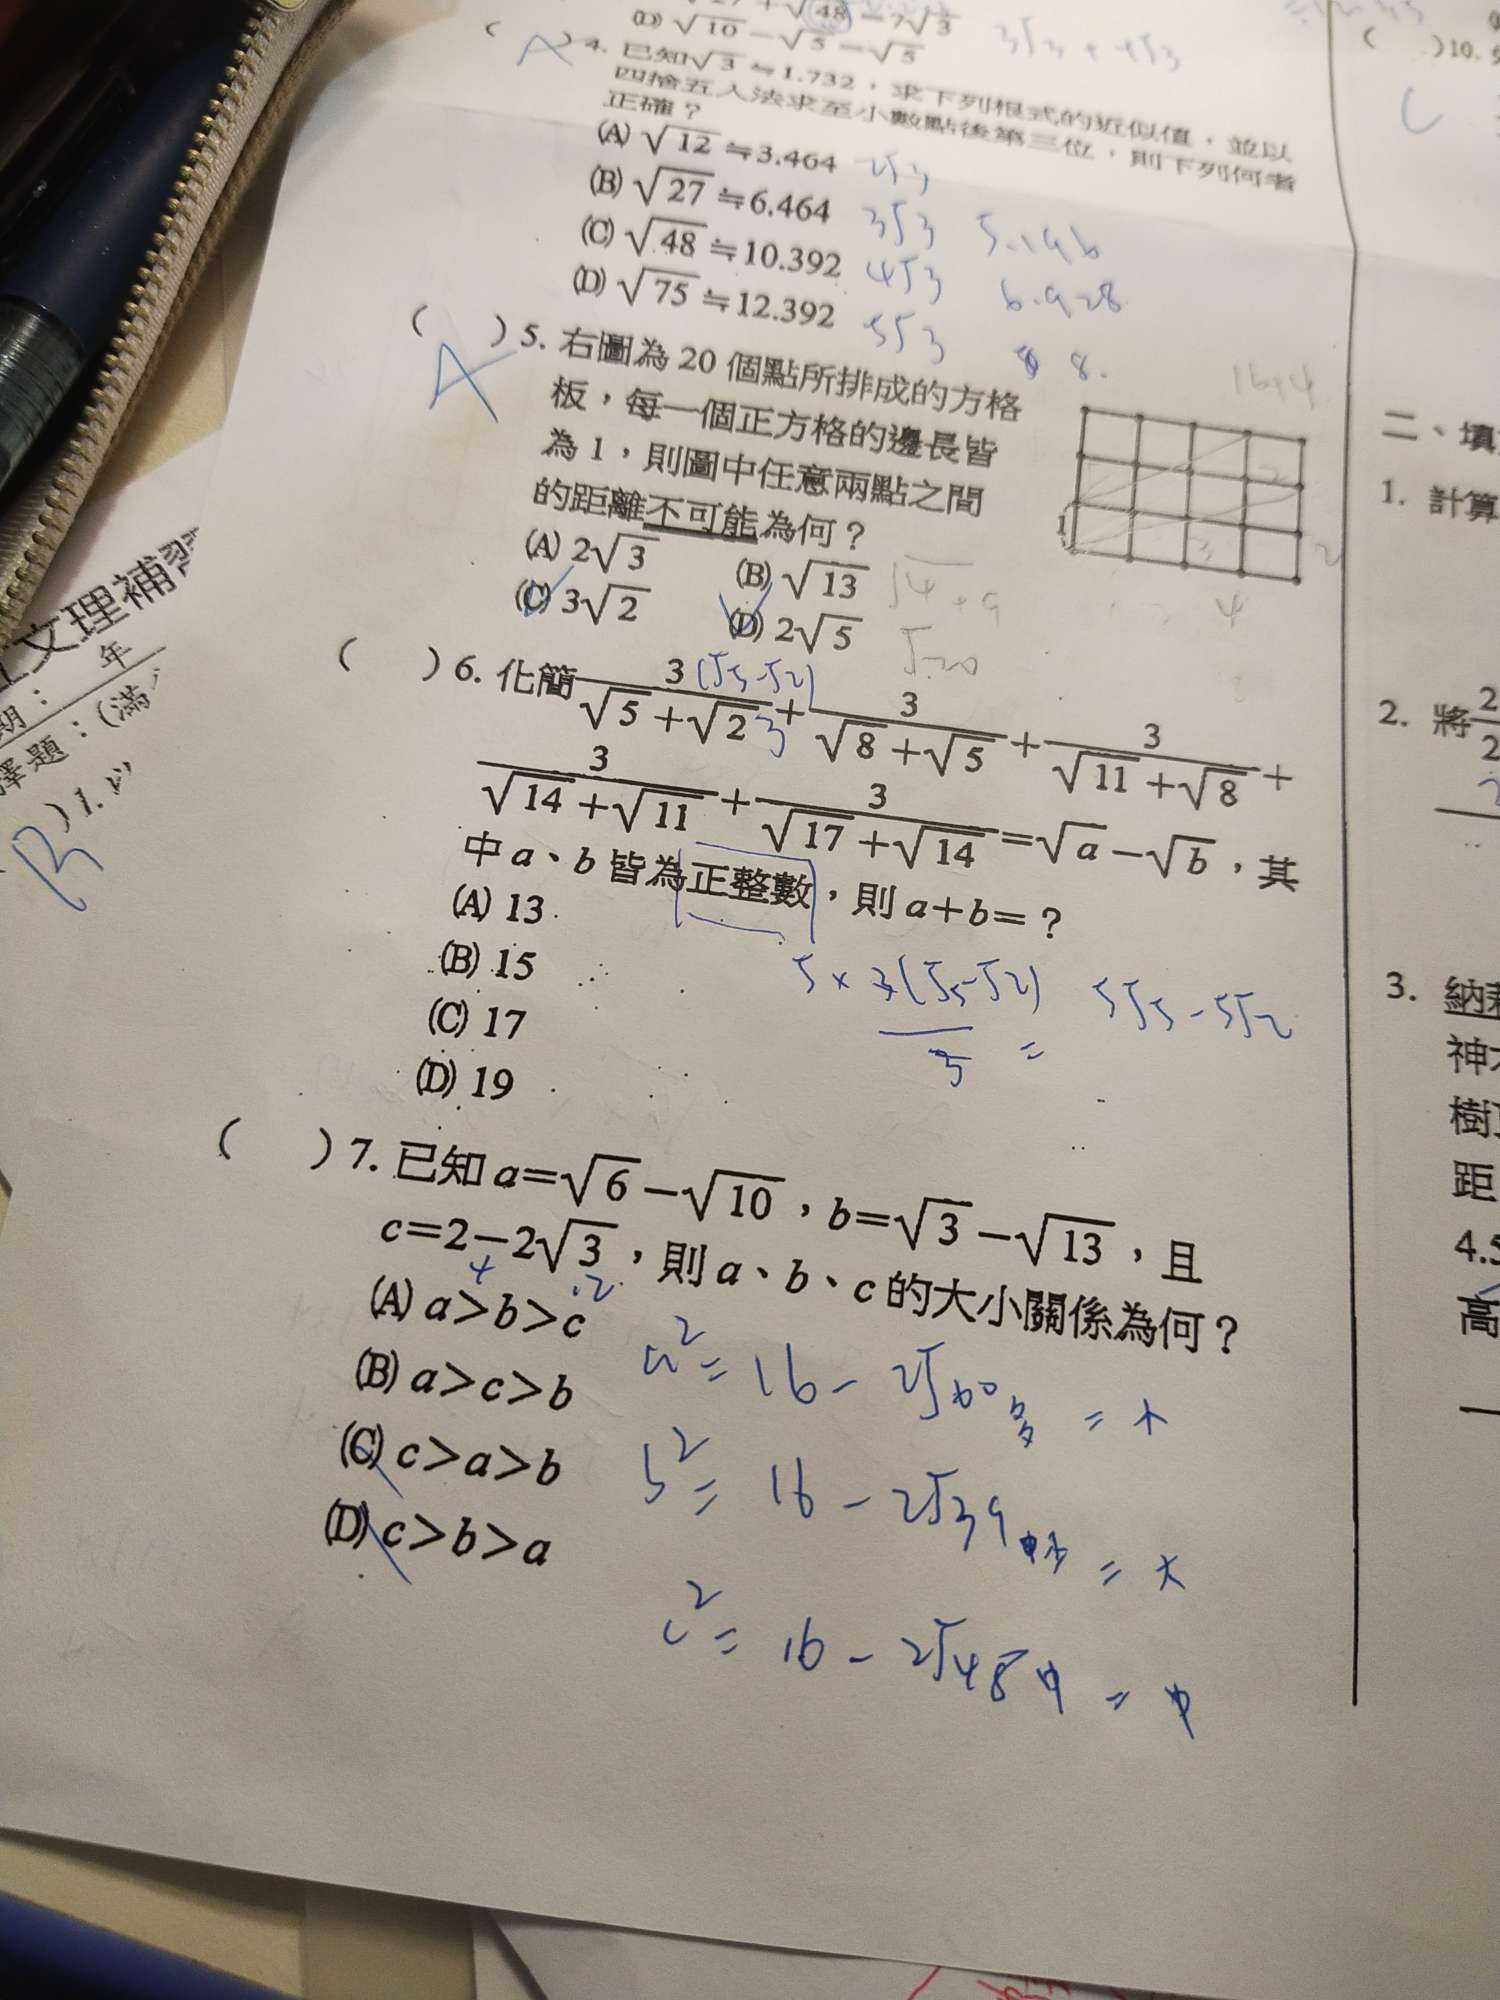 √48 = 7√3
(D) √10 − √5 = √5
3√3 + 4√3
( A ) 4. 已知√3 ≒ 1.732，求下列根式的近似值，並以
四捨五入法求至小數點後第三位，則下列何者
正確？
(A) √12 ≒ 3.464 2√3
(B) √27 ≒ 6.464 3√3 5.196
(C) √48 ≒ 10.392 4√3 6.928
(D) √75 ≒ 12.392 5√3 8.
( A ) 5. 右圖為 20 個點所排成的方格
板，每一個正方格的邊長皆
為 1，則圖中任意兩點之間
的距離不可能為何？
(A) 2√3 (B) √13 √4+9
(C) 3√2 (D) 2√5 √20
16+4
1
2
4
( ) 6. 化簡 3(√5-√2)/(√5+√2) 3 + 3/(√8+√5) + 3/(√11+√8) +
3/(√14+√11) + 3/(√17+√14) = √a − √b，其
中 a、b 皆為正整數，則 a+b=？
(A) 13
(B) 15
(C) 17
(D) 19
5×3(√5-√2)/3 = 5√5-5√2
( ) 7. 已知 a=√6−√10，b=√3−√13，且
c=2−2√3，則 a、b、c 的大小關係為何？
4 12
(A) a>b>c
(B) a>c>b
(C) c>a>b
(D) c>b>a
a²= 16 - 2√60
b²= 16 - 2√39 = 大
c²= 16 - 2√48 中 = 中
文理補習
年
期：
擇題：(滿
) 1. 以
B
( ) 10.
C
二、填
1. 計算
2. 將
3. 納
神木
樹
距
4.5
高